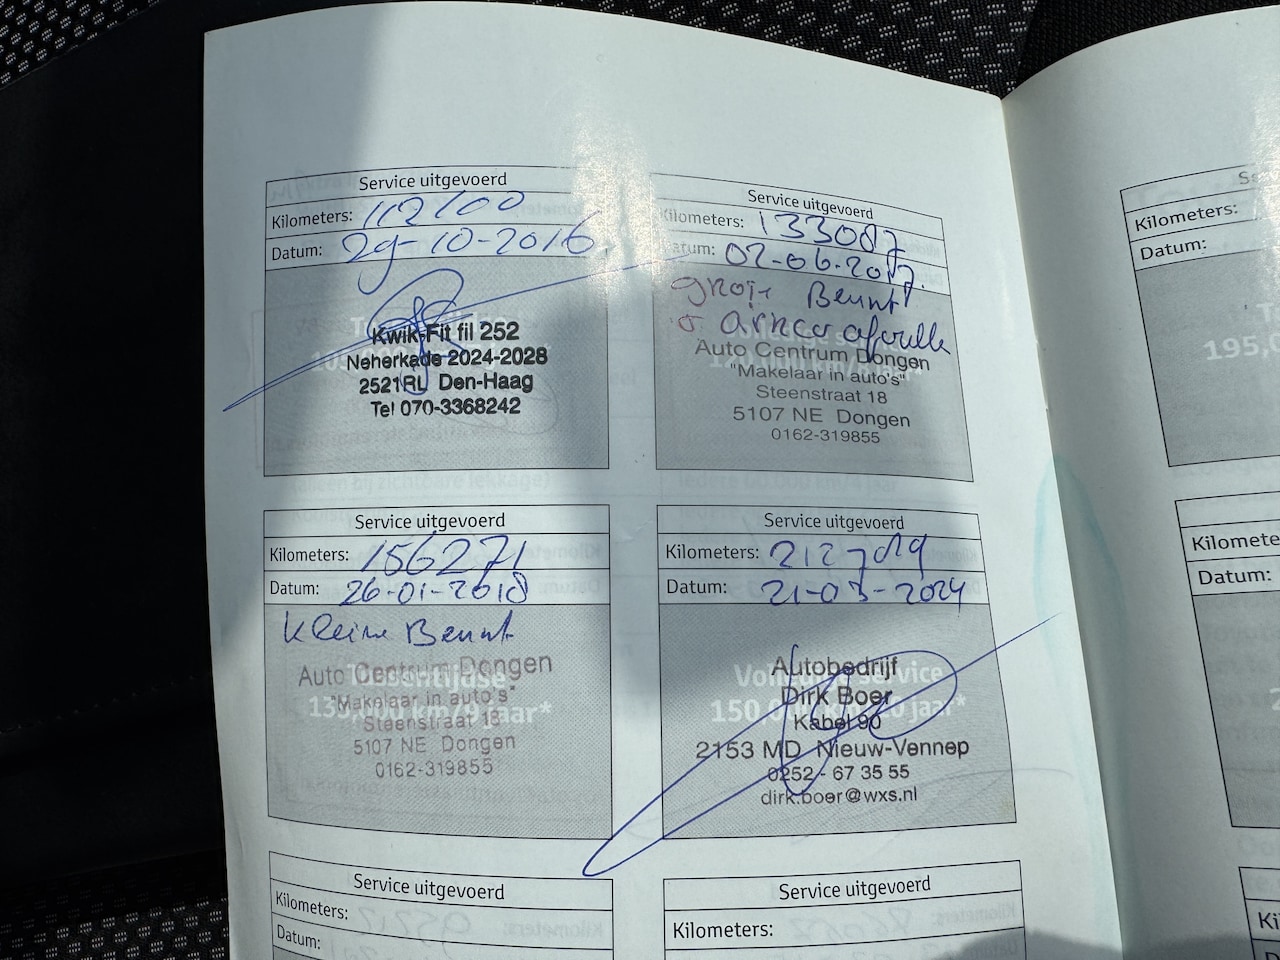 Service uitgevoerd
Kilometers: 112100
Datum: 29-10-2016.
Kwik-Fit fil 252
Neherkade 2024-2028
2521RL Den-Haag
Tel 070-3368242
Service uitgevoerd
Kilometers: 133087
Datum: 02-06-2017.
Beurt
Auto Centrum Dongen
"Makelaar in auto's"
Steenstraat 18
5107 NE Dongen
0162-319855
Service uitgevoerd
Kilometers: 156271
Datum: 26-01-2018
Kleine Beurt
Auto Centrum Dongen
"Makelaar in auto's"
135.000 km/9 jaar*
Steenstraat 18
5107 NE Dongen
0162-319855
Service uitgevoerd
Kilometers: 212719
Datum: 21-03-2024
Autobedrijf
Volledige service
Dirk Boer
150.000 km/10 jaar*
Kabel 90
2153 MD Nieuw-Vennep
0252 - 67 35 55
dirk.boer@wxs.nl
Service uitgevoerd
Kilometers:
Datum:
Service uitgevoerd
Kilometers:
Kilometers:
Datum:
195,0
Datum: